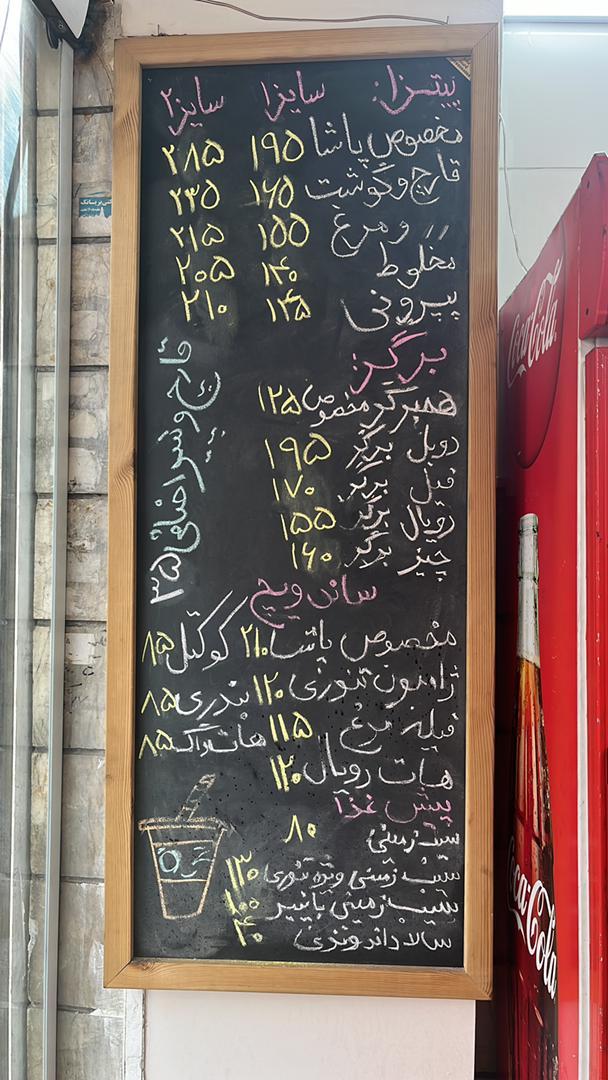 پیتزا: سایز۱ سایز۲
مخصوص پاشا ۱۹۵ ۲۸۵
قارچ و گوشت ۱۶۵ ۲۳۵
〃 و مرغ ۱۵۵ ۲۱۵
مخلوط ۱۴۰ ۲۰۵
پپرونی ۱۴۵ ۲۱۰
برگر:
همبرگر مخصوص ۱۲۵
دوبل برگر ۱۹۵
فیل برگر ۱۷۰
رویال برگر ۱۵۵
چیز برگر ۱۶۰
قارچ و پنیر اضافی ۳۵
ساندویچ
مخصوص پاشا ۲۱۰ کوکتل ۸۵
ژامبون تنوری ۱۲۰ بندری ۸۵
فیله مرغ ۱۱۵ هات داگ ۸۵
هات رویال ۱۲۰
پیش غذا
سیب زمینی ۸۰
سیب زمینی ویژه تنوری ۱۳۰
سیب زمینی با پنیر ۱۰۰
سالاد اندونزی ۴۰
Coca-Cola
Coca-Cola